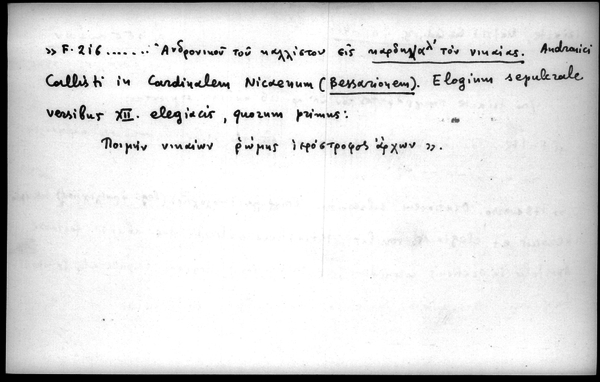 » F. 216 ....... Ἀνδρονίκου τοῦ καλλίστου εἰς καρδηνάλ' τὸν νικαίας. Andronici
Callisti in Cardinalem Nicaenum (Bessarionem). Elogium sepulcrale
versibus XII. elegiacis, quorum primus:
Ποιμὴν νικαίων ῥώμης ἱερόστροφος ἄρχων ».